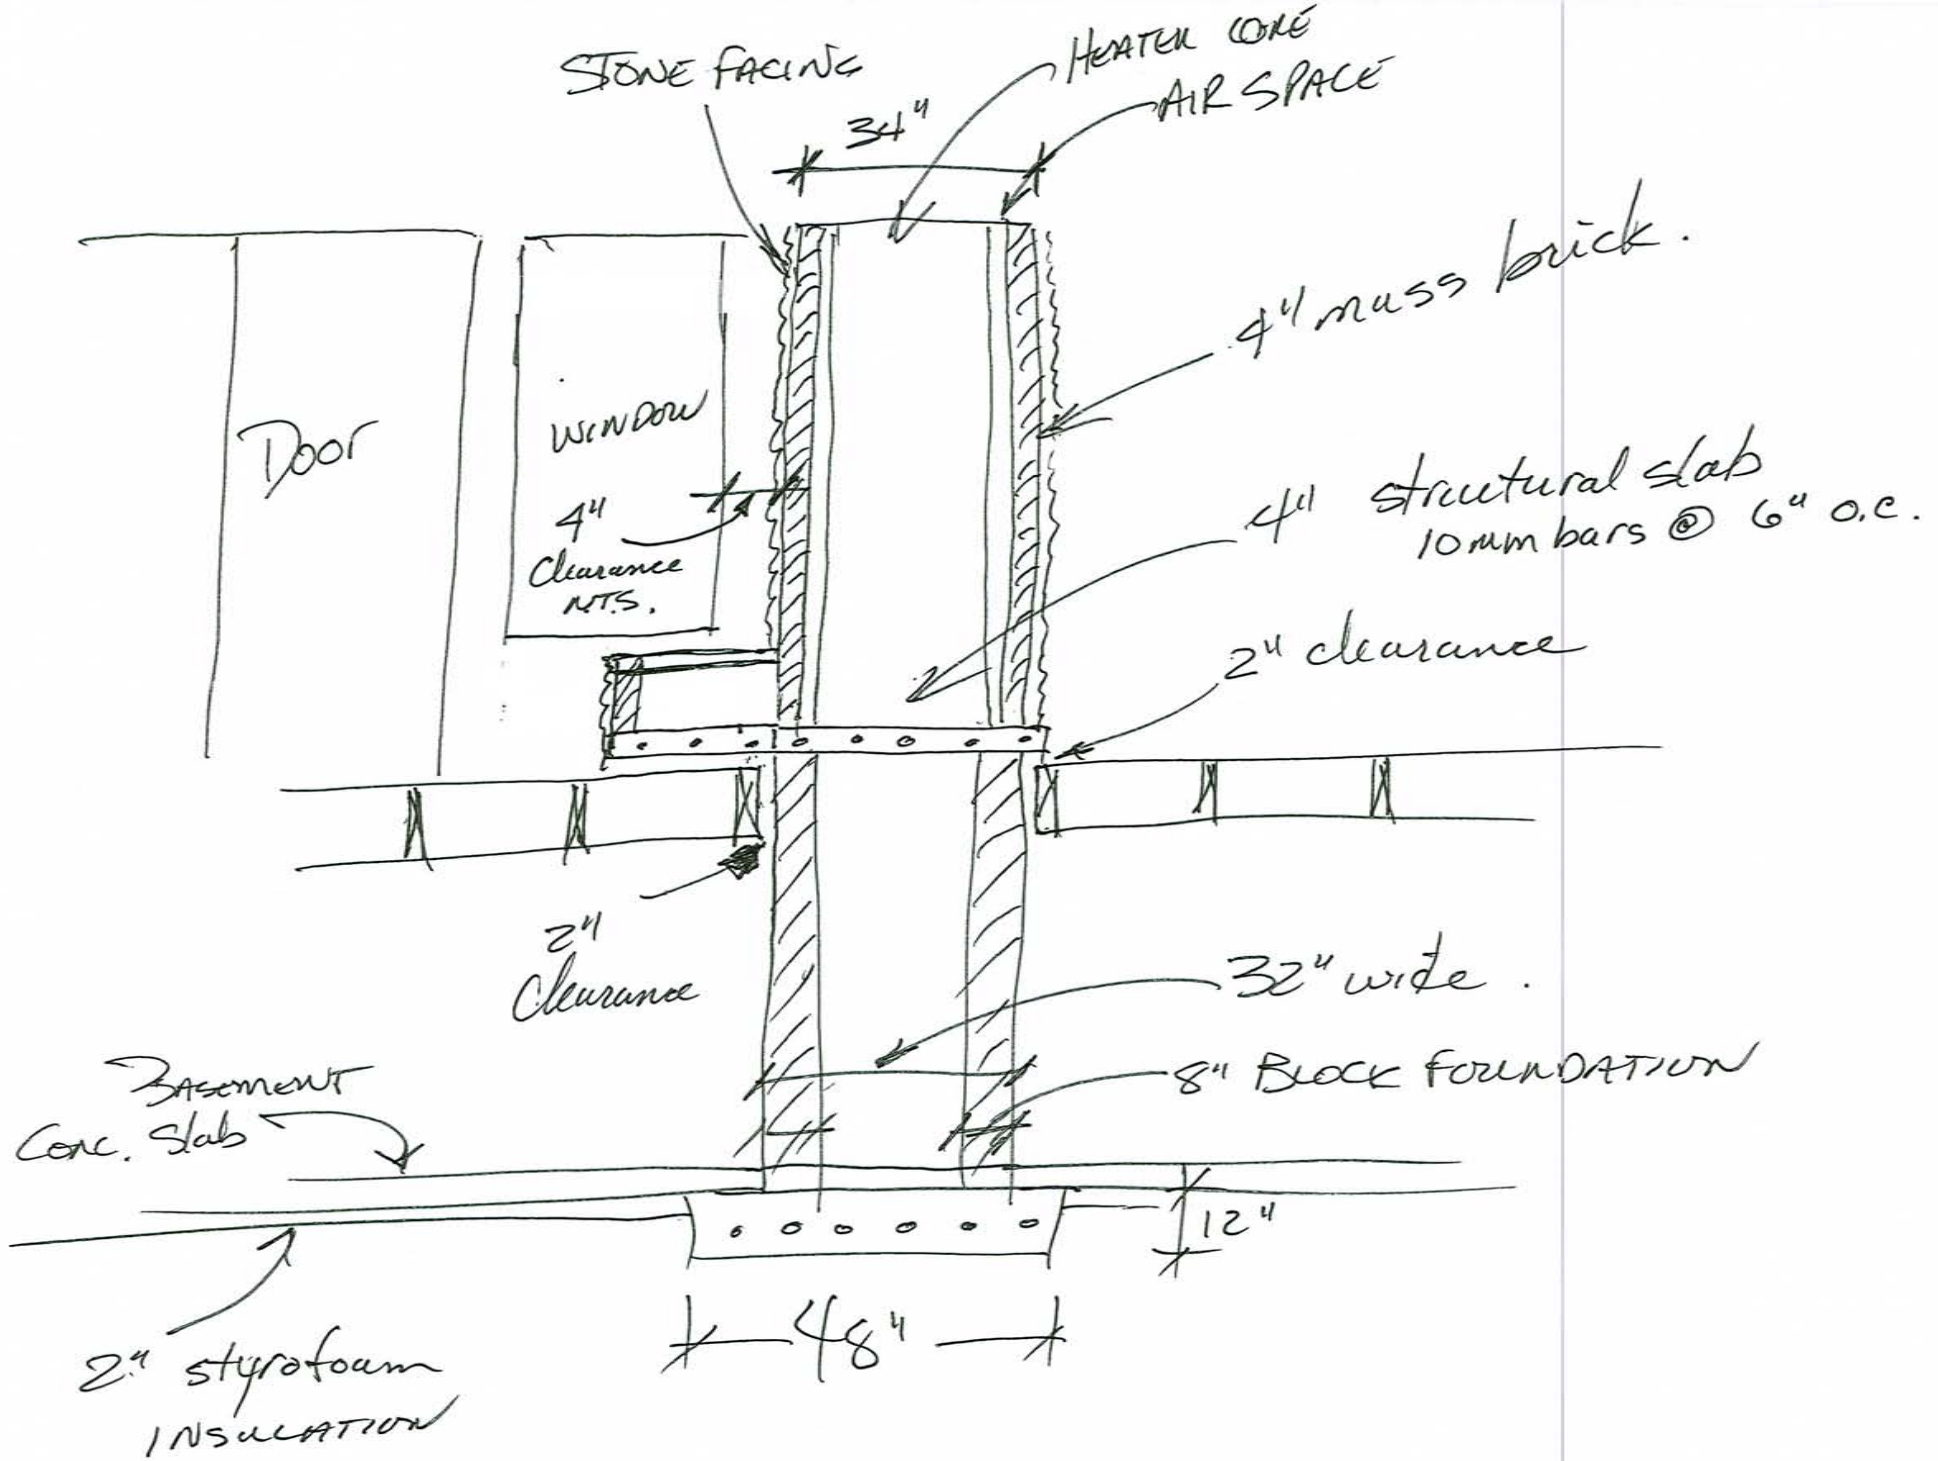 STONE FACING
HEATER CORE
AIR SPACE
34"
4" mass brick.
Door
WINDOW
4"
Clearance
N.T.S.
4" structural slab
10mm bars @ 6" o.c.
2" clearance
2"
Clearance
32" wide.
8" BLOCK FOUNDATION
BASEMENT
Conc. Slab
12"
48"
2" styrofoam
INSULATION